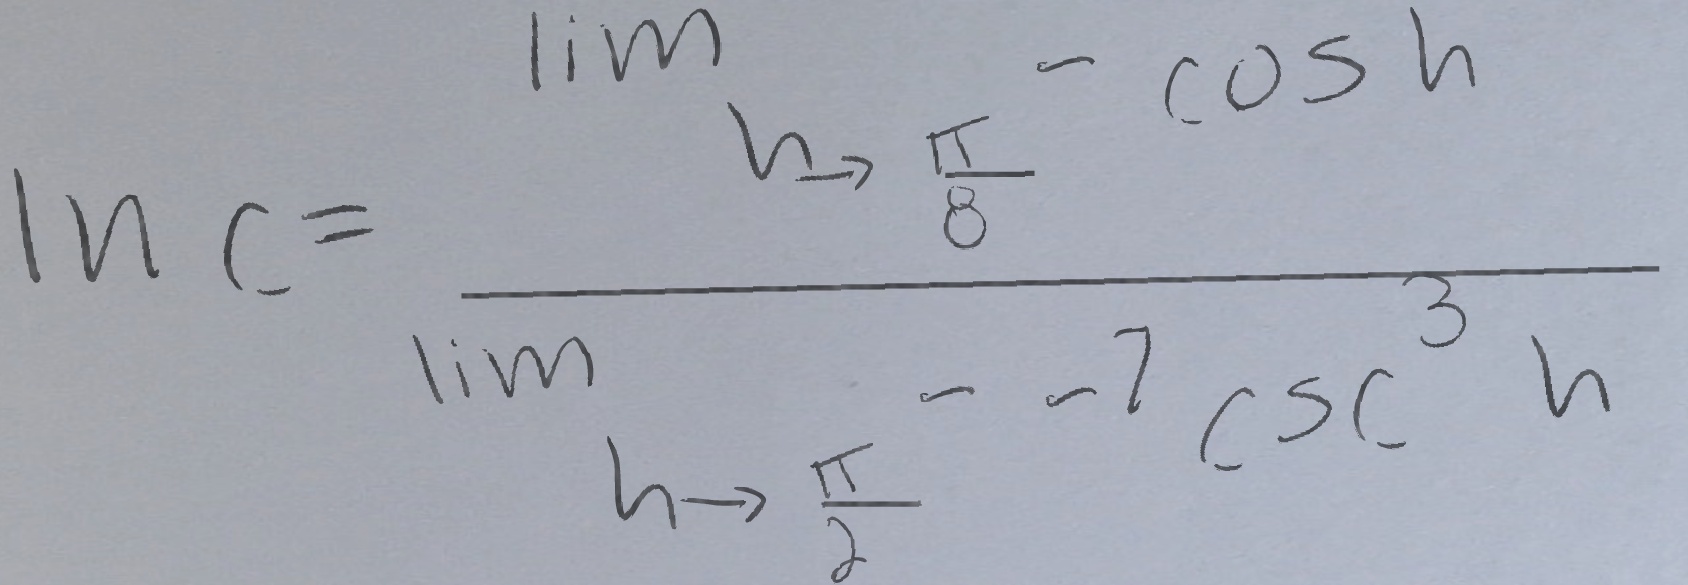 ln c = \frac{\lim_{h \to \frac{\pi}{8}^-} \cos h}{\lim_{h \to \frac{\pi}{2}^-} -7 \csc^3 h}